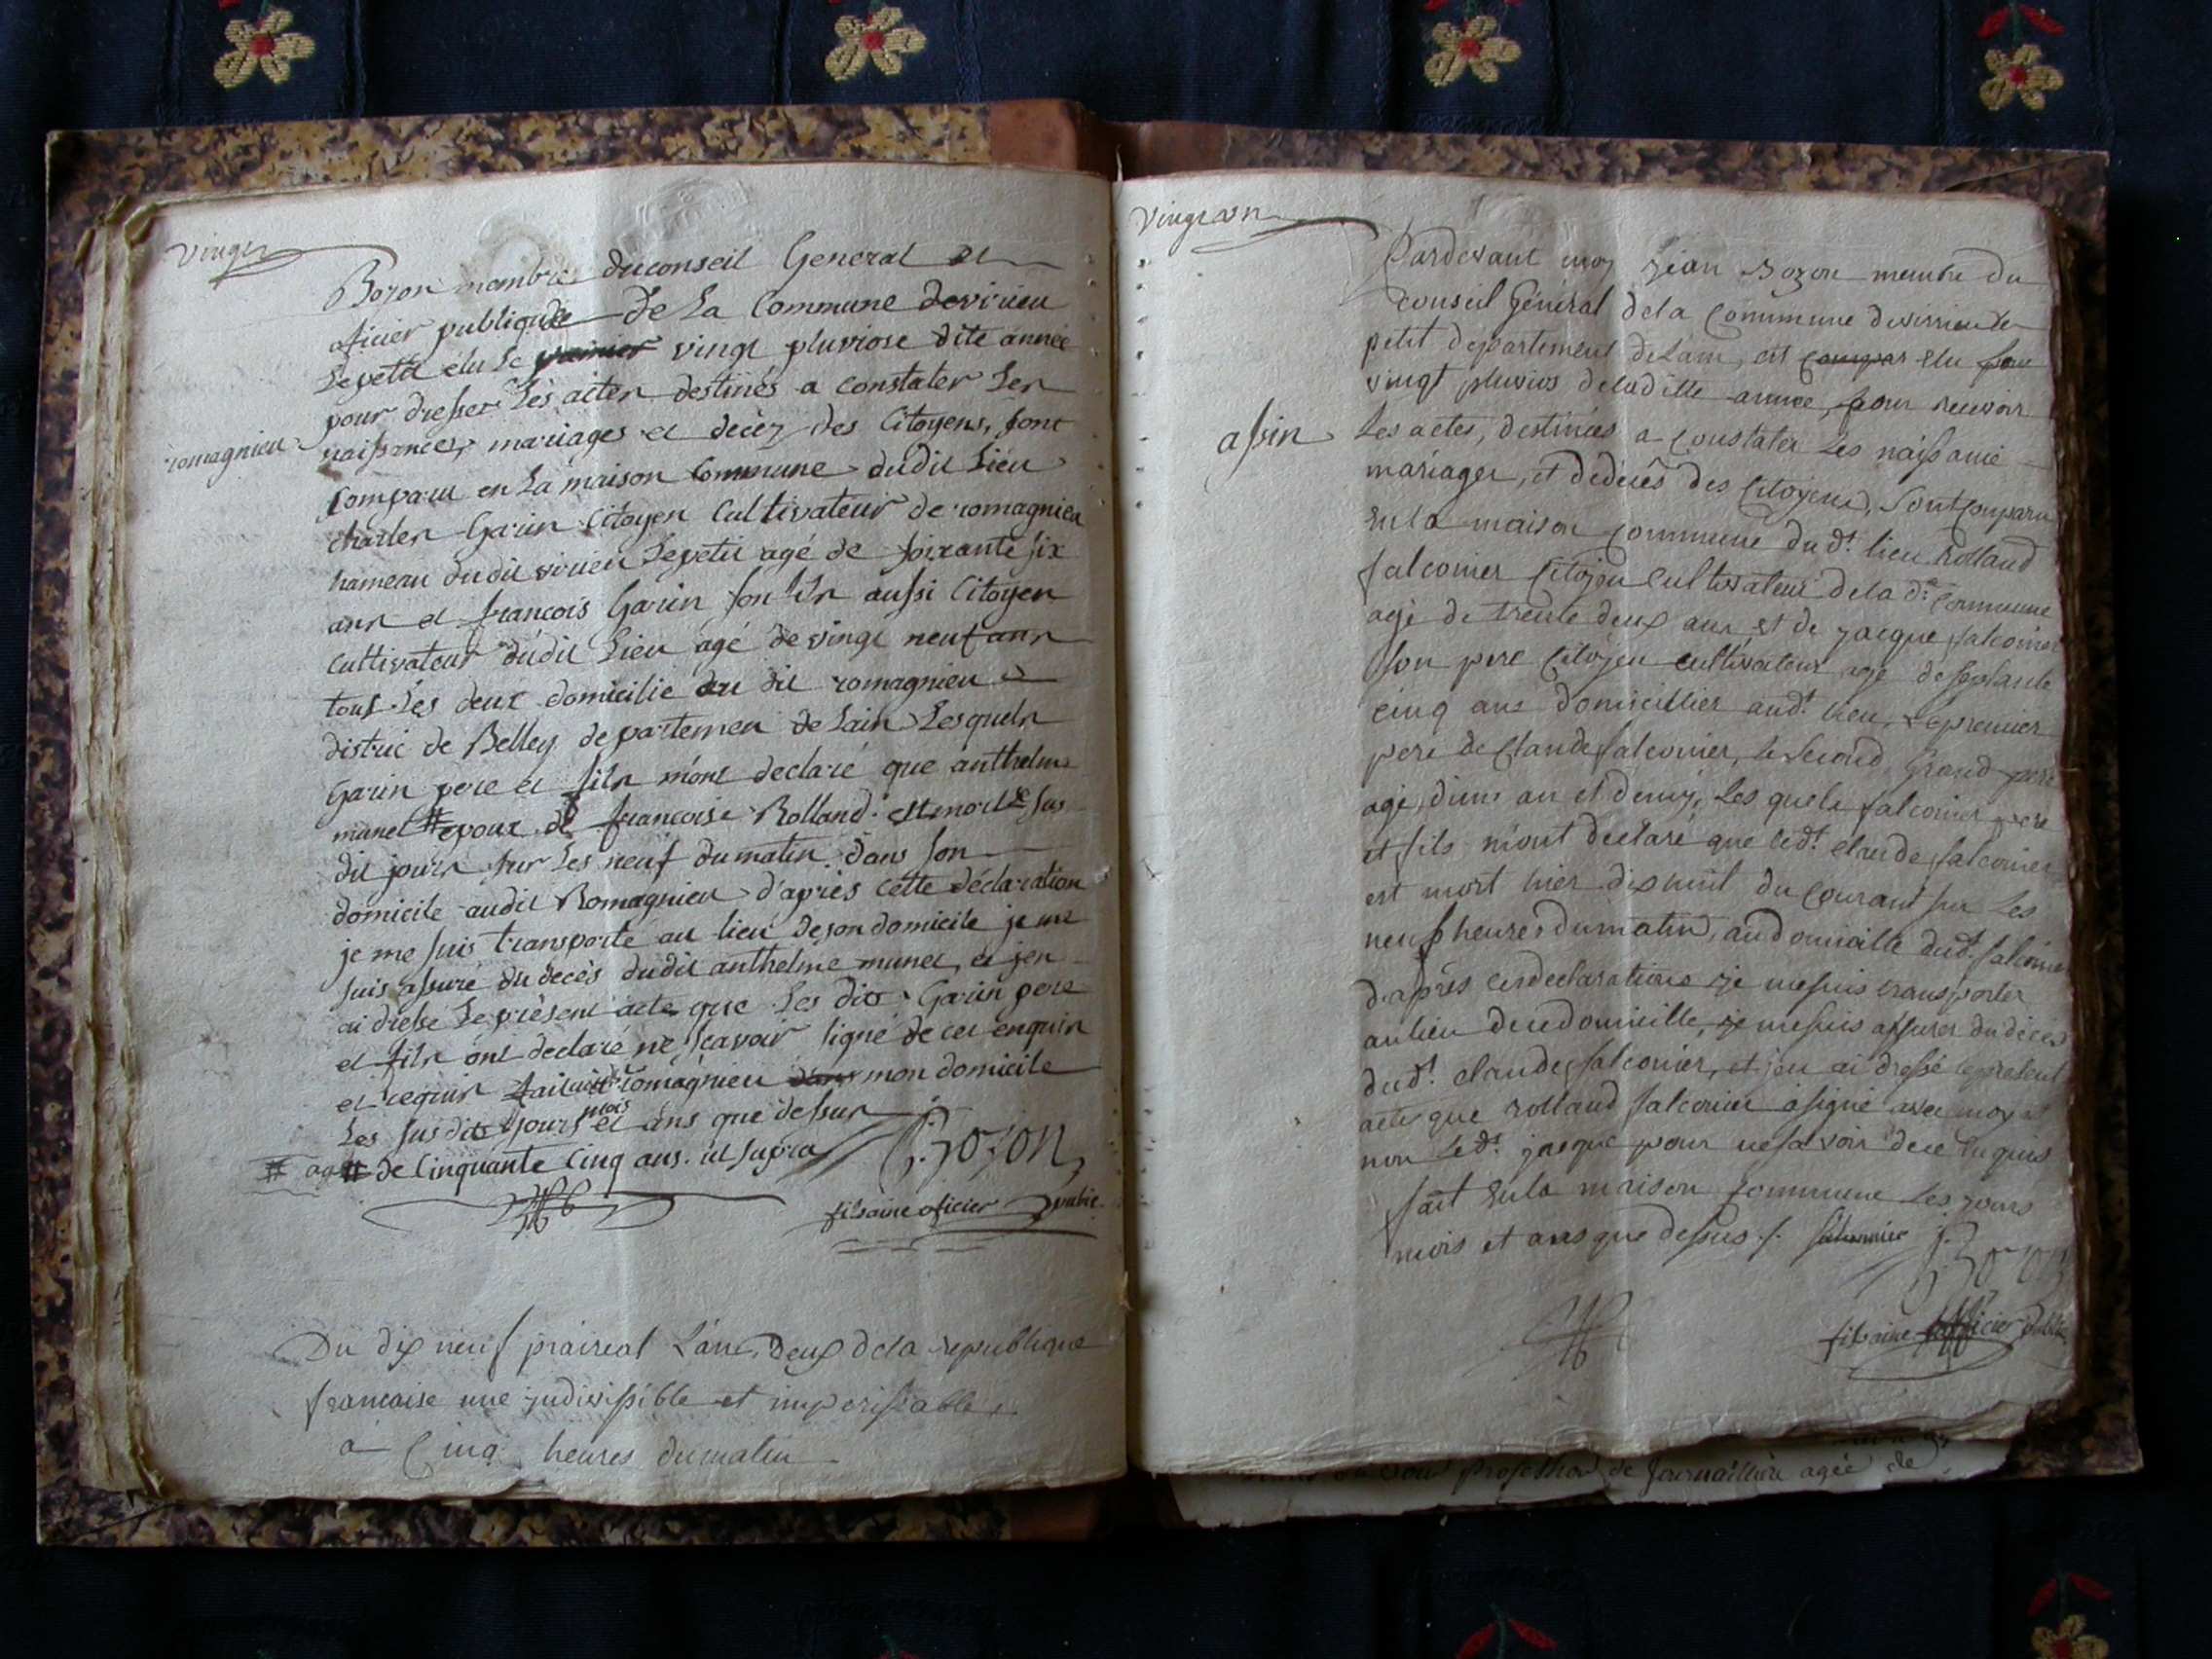 vingt
Bozon membre du conseil General et
oficier publique de La Commune de virieu
Le petit élu Le premier vingt pluviose dite année
pour dresser Les actes destinés a constater Les
naissances, mariages et décéz des Citoyens, sont
romagnieu
comparu en La maison Commune dudit Lieu
charles Garin Citoyen Cultivateur de romagnieu
hameau dudit virieu Le petit agé de soixante six
ans et francois Garin son fils aussi Citoyen
Cultivateur dudit Lieu agé de vingt neuf ans
tous Les deux domicilie au dit romagnieu
district de Belley departement de Lain Lesquels
Garin pere et fils m'ont declaré que anthelme
munet # epoux de francoise Rolland est mort Le sus
dit jours sur Les neuf du matin dans son
domicile audit Romagnieu d'après cette déclaration
je me suis transporté au lieu de son domicile je me
suis assuré du decès dudit anthelme munet, et jen
ai dresse Le présent acte que Les dits Garin pere
et fils ont declaré ne scavoir signé de ce enquis
et requis fait audit romagnieu dans mon domicile
Les susdits jours mois et ans que dessus
# agé de Cinquante Cinq ans. ut supra J. Bozon
fils aine oficier public
Du dix neuf prairéal L'an Deux de la republique
francaise une indivissible et imperissable
a Cinq heures du matin
vingt un
Pardevant moy Jean Bozon membre du
Conseil Général de la Commune de virieu le
petit departement de Lain, est elu
vingt pluvios de la ditte année, pour recevoir
assin Les actes, destinées a constater Les naissance
mariages, et de décés des Citoyens, sont comparu
en la maison Commune du dt. lieu Rolland
falconier Citoyen Cultivateur de la dte. Commune
agé de trente deux ans et de jacque falconier
son pere Citoyen cultivateur agé de septante
cinq ans domicillier aud.t lieu, Le premier
pere de Claude falconier, le second Grand pere
agé, d'une an et demy, Les quels falconier pere
et fils m'ont declaré que led.t claude falconier
est mort hier dix huit du Courant sur Les
neuf heures du matin, au domicille dud.t falconier
d'après ces declarations je me suis transporter
au lieu de ce domicille, je me suis assurer du déces
dud.t claude falconier, et j'en ai dressé le present
acte que rolland falconier a signé avec moy et
non Led.t jacque pour ne savoir de ce enquis
fait en la maison Commune Les jours
mois et ans que dessus ./. falconier J. Bozon
fils aine officier public
profession de Journaillière agée de